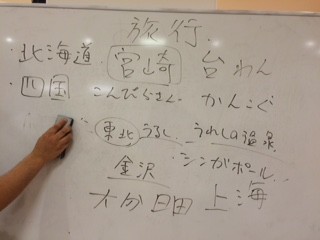 旅行.
・北海道 宮崎 台わん
・四国 こんぴらさん かんこく
東北 うるし うれしの温泉
金沢 シンガポール
大分日田 上海